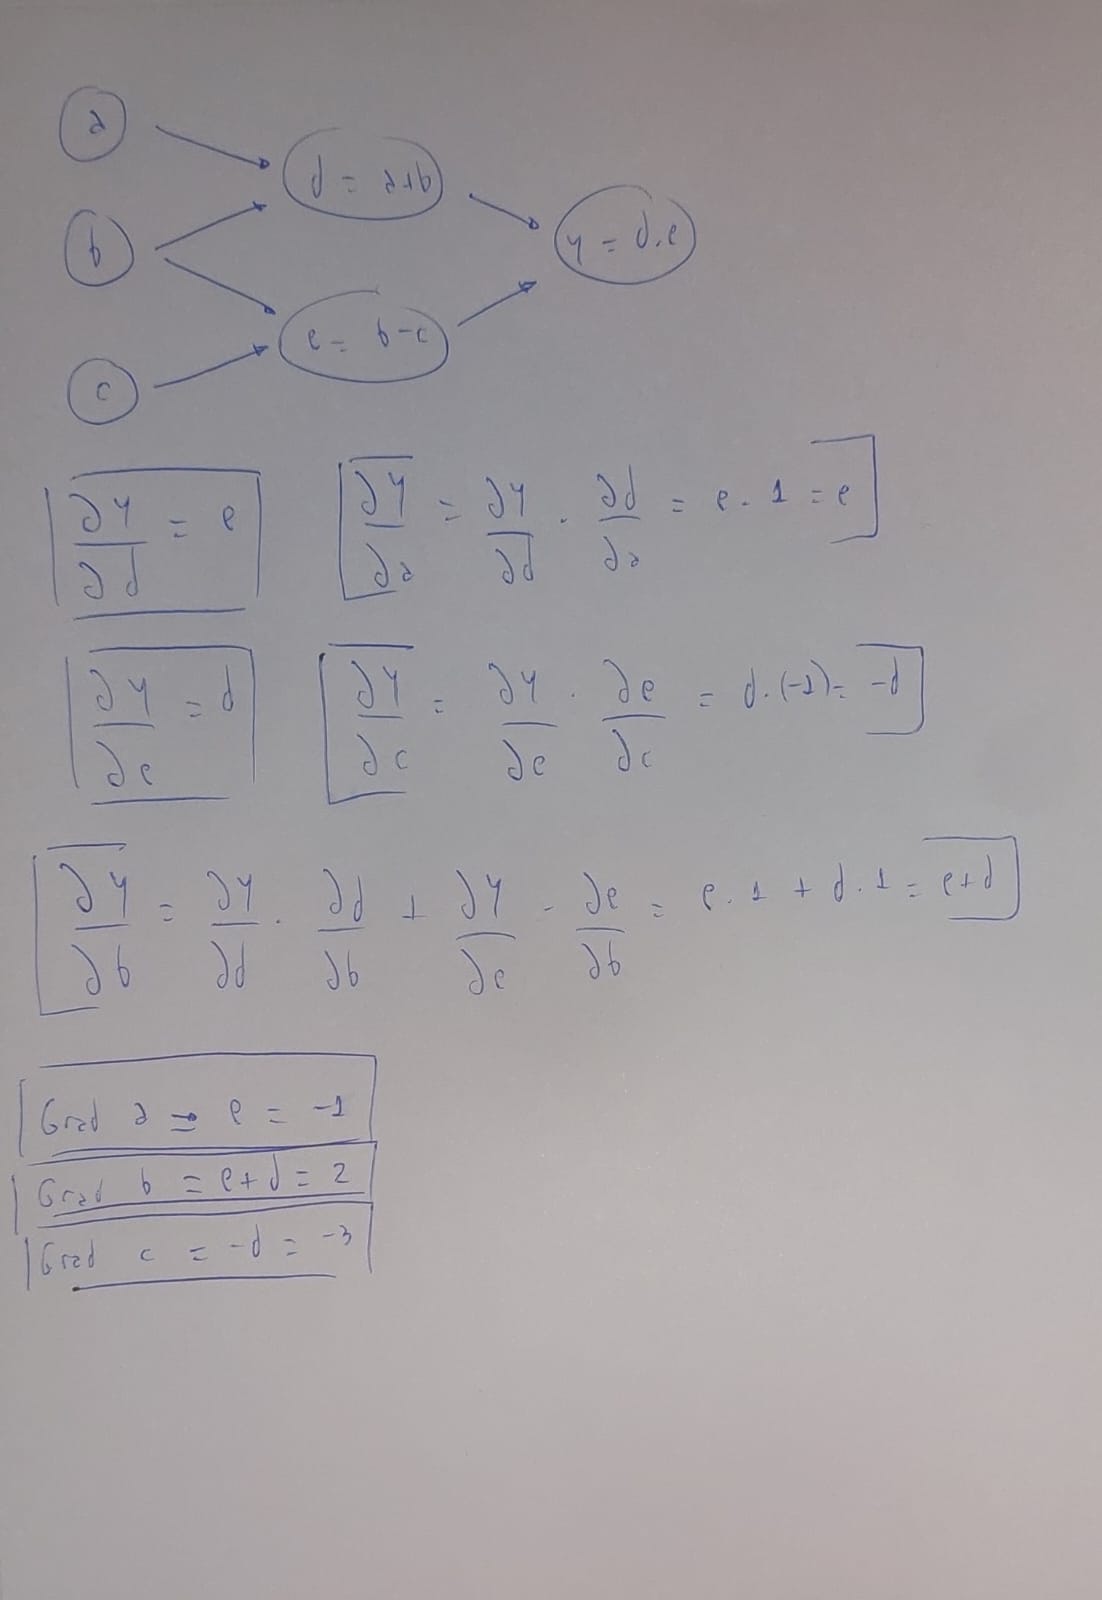 a
d = a+b
b
y = d.e
e = b-c
c
∂y/∂d = e
∂y/∂a = ∂y/∂d . ∂d/∂a = e . 1 = e
∂y/∂e = d
∂y/∂c = ∂y/∂e . ∂e/∂c = d.(-1) = -d
∂y/∂b = ∂y/∂d . ∂d/∂b + ∂y/∂e . ∂e/∂b = e.1 + d.1 = e+d
Grad a = e = -1
Grad b = e+d = 2
Grad c = -d = -3